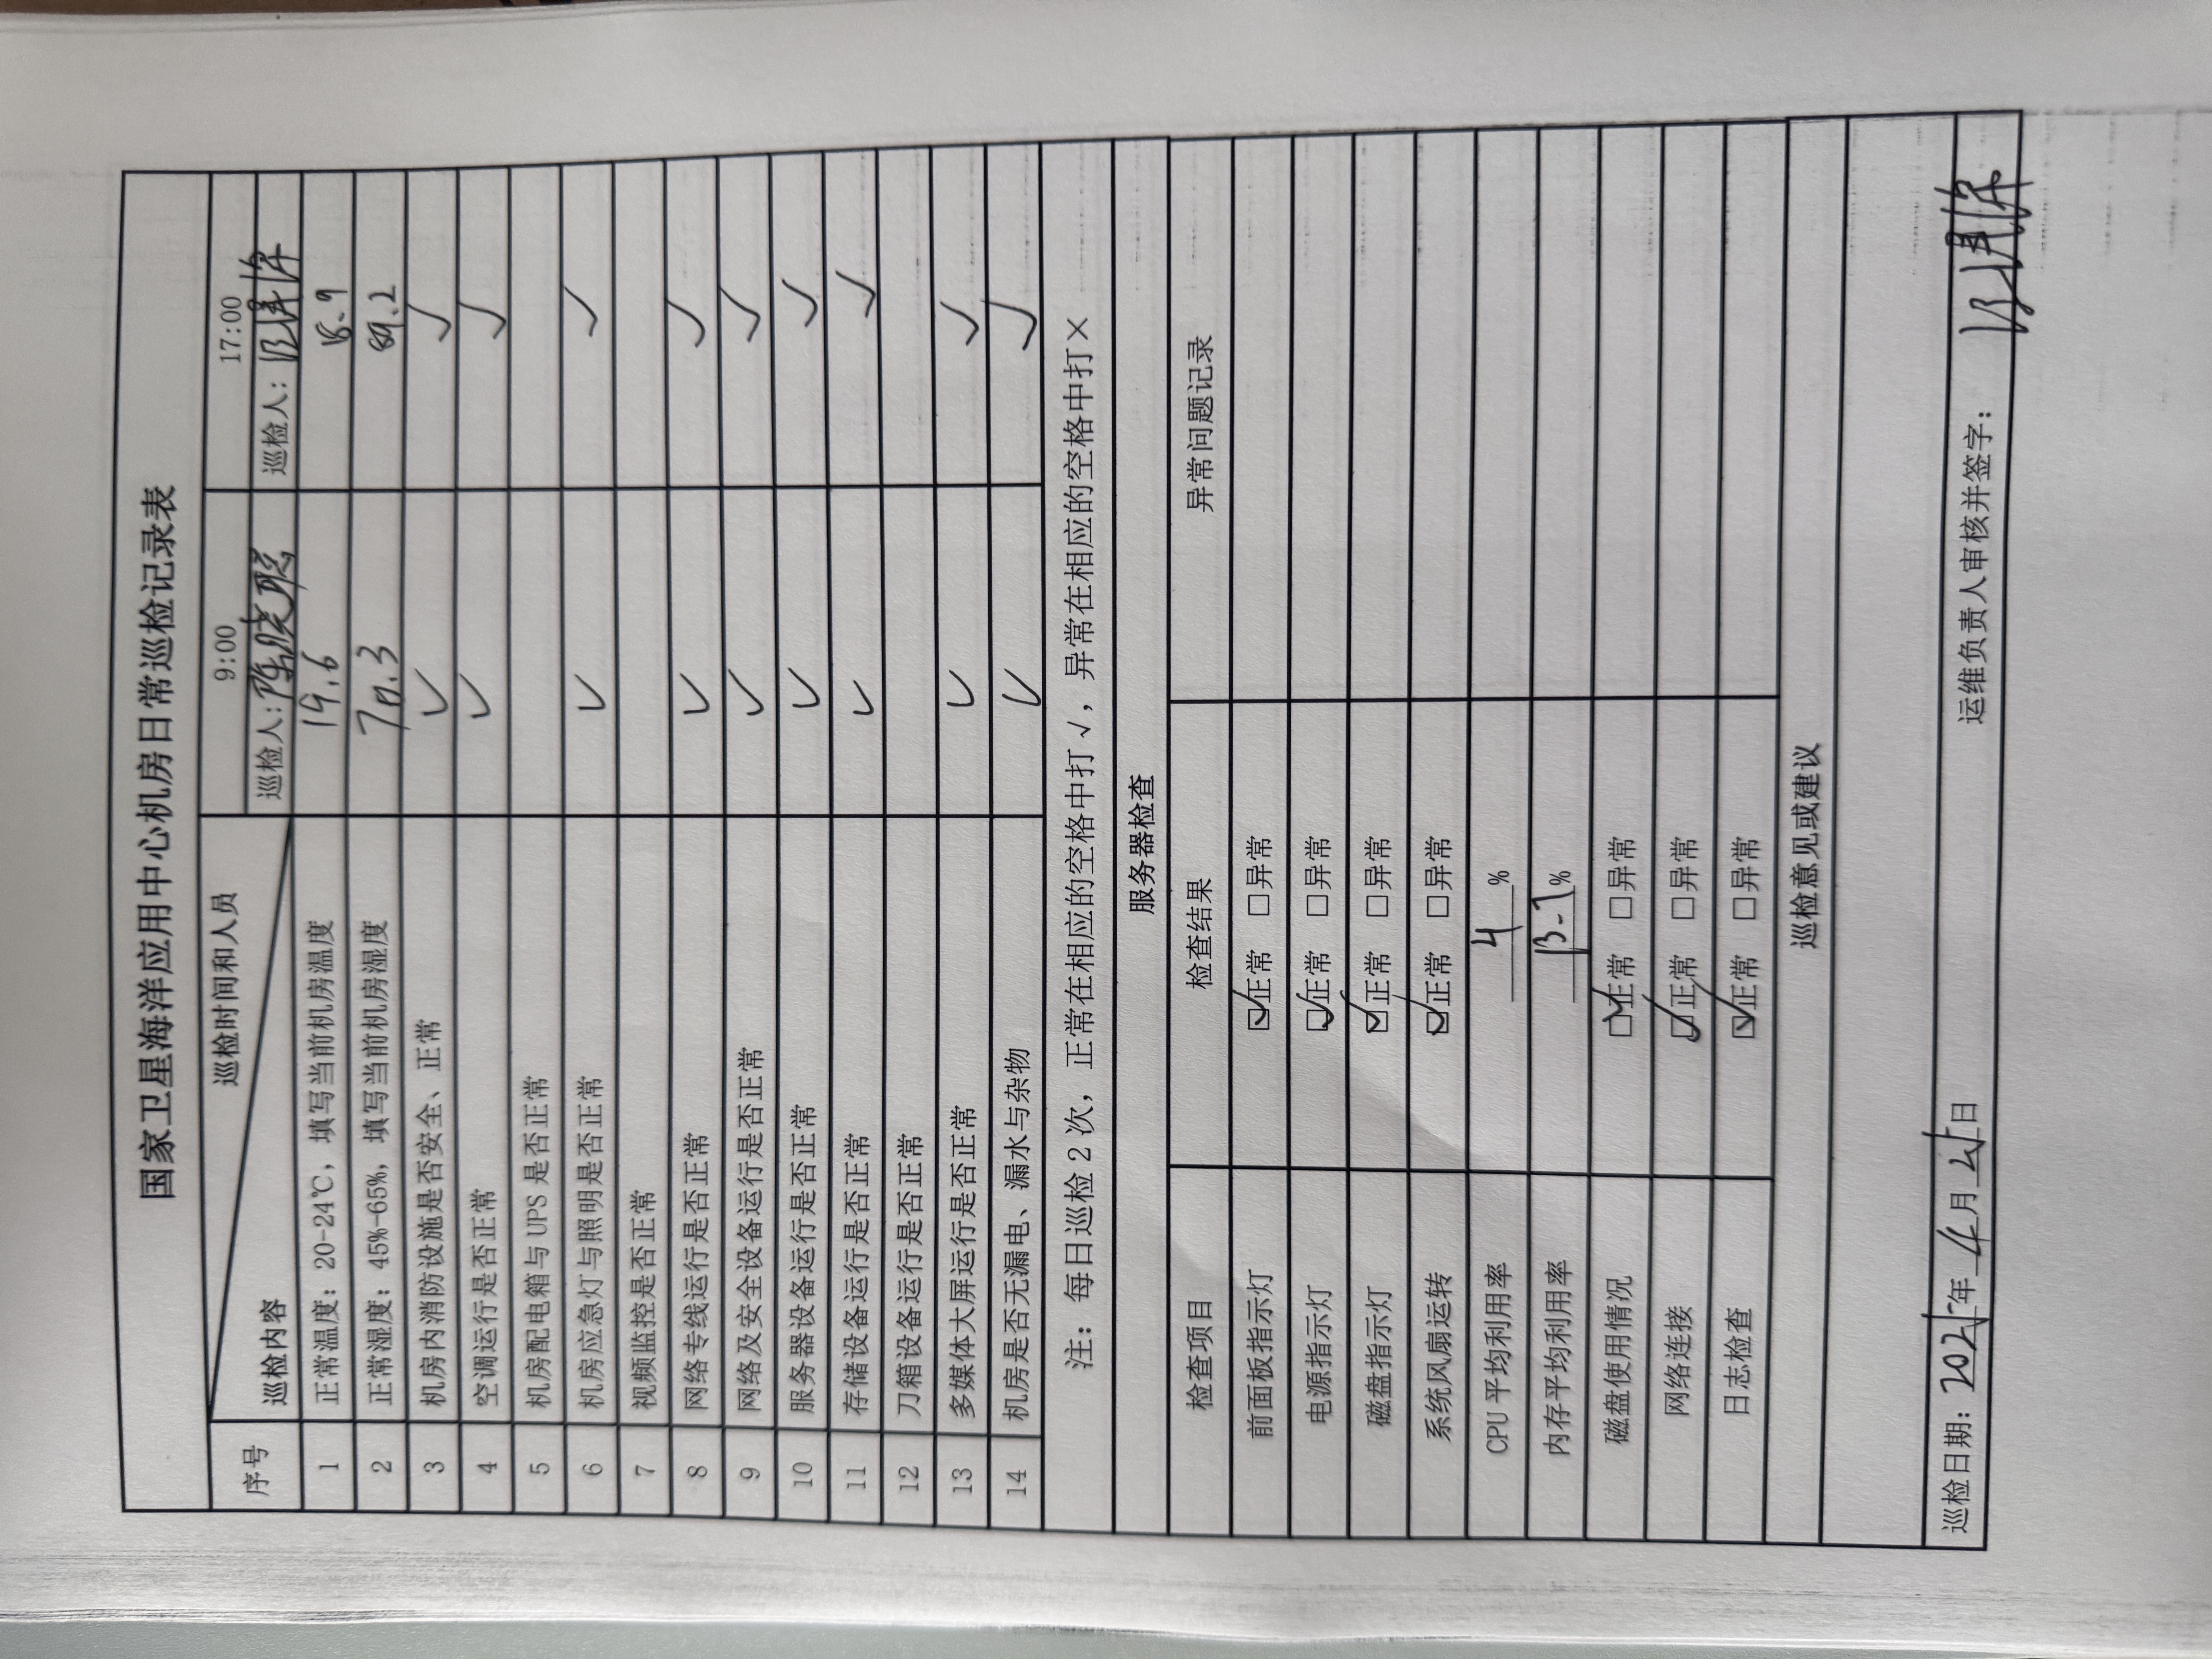 国家卫星海洋应用中心机房日常巡检记录表
序号 巡检内容 巡检时间和人员 9:00 17:00
巡检人：陈晓聪 巡检人：
1 正常温度：20-24℃，填写当前机房温度 19.6 18.9
2 正常湿度：45%-65%，填写当前机房湿度 70.3
3 机房内消防设施是否安全、正常 ✓ ✓
4 空调运行是否正常 ✓ ✓
5 机房配电箱与 UPS 是否正常
6 机房应急灯与照明是否正常 ✓ ✓
7 视频监控是否正常
8 网络专线运行是否正常 ✓ ✓
9 网络及安全设备运行是否正常 ✓ ✓
10 服务器设备运行是否正常 ✓ ✓
11 存储设备运行是否正常 ✓ ✓
12 刀箱设备运行是否正常
13 多媒体大屏运行是否正常 ✓ ✓
14 机房是否无漏电、漏水与杂物 ✓ ✓
注：每日巡检 2 次，正常在相应的空格中打 √，异常在相应的空格中打×
服务器检查
检查项目 检查结果 异常问题记录
前面板指示灯 ☑正常 □异常
电源指示灯 ☑正常 □异常
磁盘指示灯 ☑正常 □异常
系统风扇运转 ☑正常 □异常
CPU 平均利用率 4 %
内存平均利用率 %
磁盘使用情况 ☑正常 □异常
网络连接 ☑正常 □异常
日志检查 ☑正常 □异常
巡检意见或建议
巡检日期：2025年 4 月 日 运维负责人审核并签字：